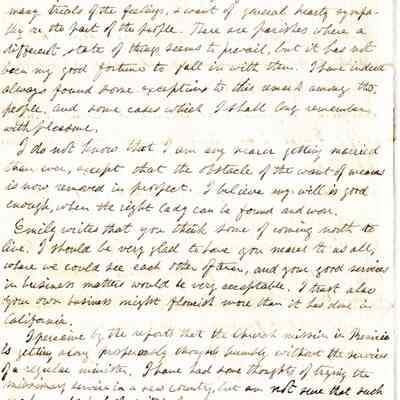 many trials of the feelings, & want of general hearty sympa-
thy on the part of the people. There are parishes where a
different state of things seems to prevail, but it has not
been my good fortune to fall in with them. I have indeed
always found some exceptions to this remark among the
people, and some cases which I shall long remember
with pleasure.
I do not know that I am any nearer getting married
than ever, except that the obstacle of the want of means
is now removed in prospect. I believe my will is good
enough, when the right lady can be found and won.
Emily writes that you think some of coming north to
live. I should be very glad to have you nearer to us all,
where we could see each other often, and your good services
in business matters would be very acceptable. I trust also
your own business might flourish more than it has done in
California.
I perceive by the reports that the Church mission in Benicia
is getting along prosperously though humbly without the services
of a regular minister. I have had some thoughts of trying the
missionary service in a new country, but am not sure that such